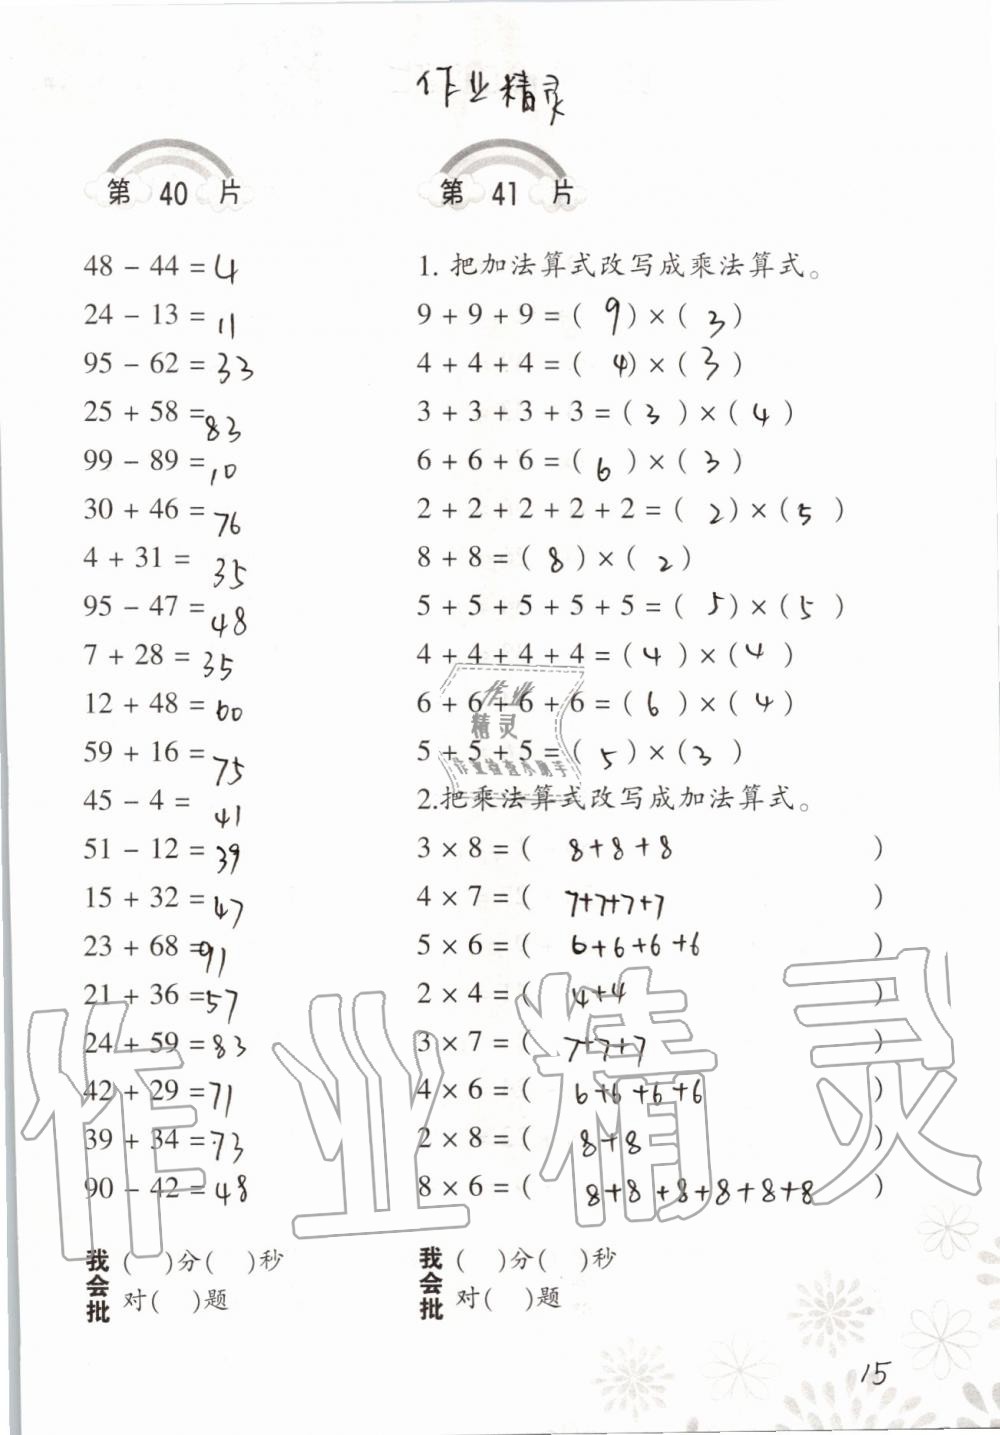 作业精灵
第 40 片
48 - 44 = 4
24 - 13 = 11
95 - 62 = 33
25 + 58 = 83
99 - 89 = 10
30 + 46 = 76
4 + 31 = 35
95 - 47 = 48
7 + 28 = 35
12 + 48 = 60
59 + 16 = 75
45 - 4 = 41
51 - 12 = 39
15 + 32 = 47
23 + 68 = 91
21 + 36 = 57
24 + 59 = 83
42 + 29 = 71
39 + 34 = 73
90 - 42 = 48
我会批
( )分( )秒
对( )题
第 41 片
1. 把加法算式改写成乘法算式。
9 + 9 + 9 = ( 9 ) × ( 3 )
4 + 4 + 4 = ( 4 ) × ( 3 )
3 + 3 + 3 + 3 = ( 3 ) × ( 4 )
6 + 6 + 6 = ( 6 ) × ( 3 )
2 + 2 + 2 + 2 + 2 = ( 2 ) × ( 5 )
8 + 8 = ( 8 ) × ( 2 )
5 + 5 + 5 + 5 + 5 = ( 5 ) × ( 5 )
4 + 4 + 4 + 4 = ( 4 ) × ( 4 )
6 + 6 + 6 + 6 = ( 6 ) × ( 4 )
5 + 5 + 5 = ( 5 ) × ( 3 )
2. 把乘法算式改写成加法算式。
3 × 8 = ( 8+8+8 )
4 × 7 = ( 7+7+7+7 )
5 × 6 = ( 6+6+6+6 )
2 × 4 = ( 4+4 )
3 × 7 = ( 7+7+7 )
4 × 6 = ( 6+6+6+6 )
2 × 8 = ( 8+8 )
8 × 6 = ( 8+8+8+8+8+8 )
我会批
( )分( )秒
对( )题
作业
精灵
作业检查小助手
作业精灵
15